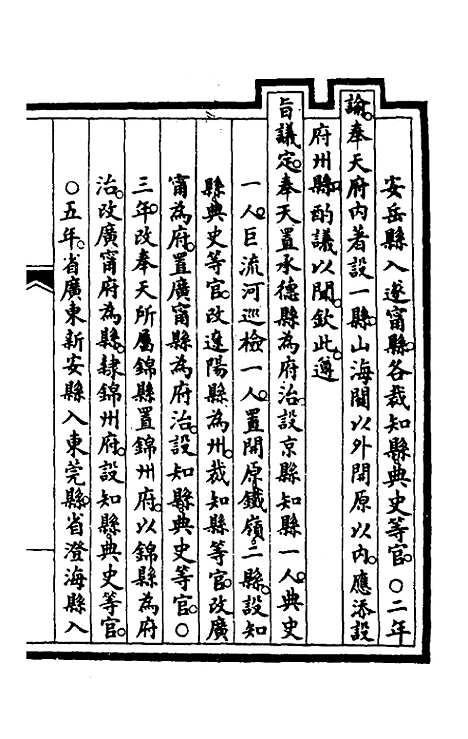 安岳縣入遂甯縣。各裁知縣典史等官。○二年
諭。奉天府內著設一縣。山海關以外開原以內。應添設
府州縣。酌議以聞。欽此。遵
旨議定。奉天置承德縣為府治。設京縣知縣一人。典史
一人。巨流河巡檢一人。置開原鐵嶺二縣。設知
縣典史等官。改遼陽縣為州。裁知縣等官。改廣
甯為府。置廣甯縣為府治。設知縣典史等官。○
三年。改奉天所屬錦縣置錦州府。以錦縣為府
治。改廣甯府為縣。隸錦州府。設知縣典史等官。
○五年。省廣東新安縣入東莞縣。省澄海縣入